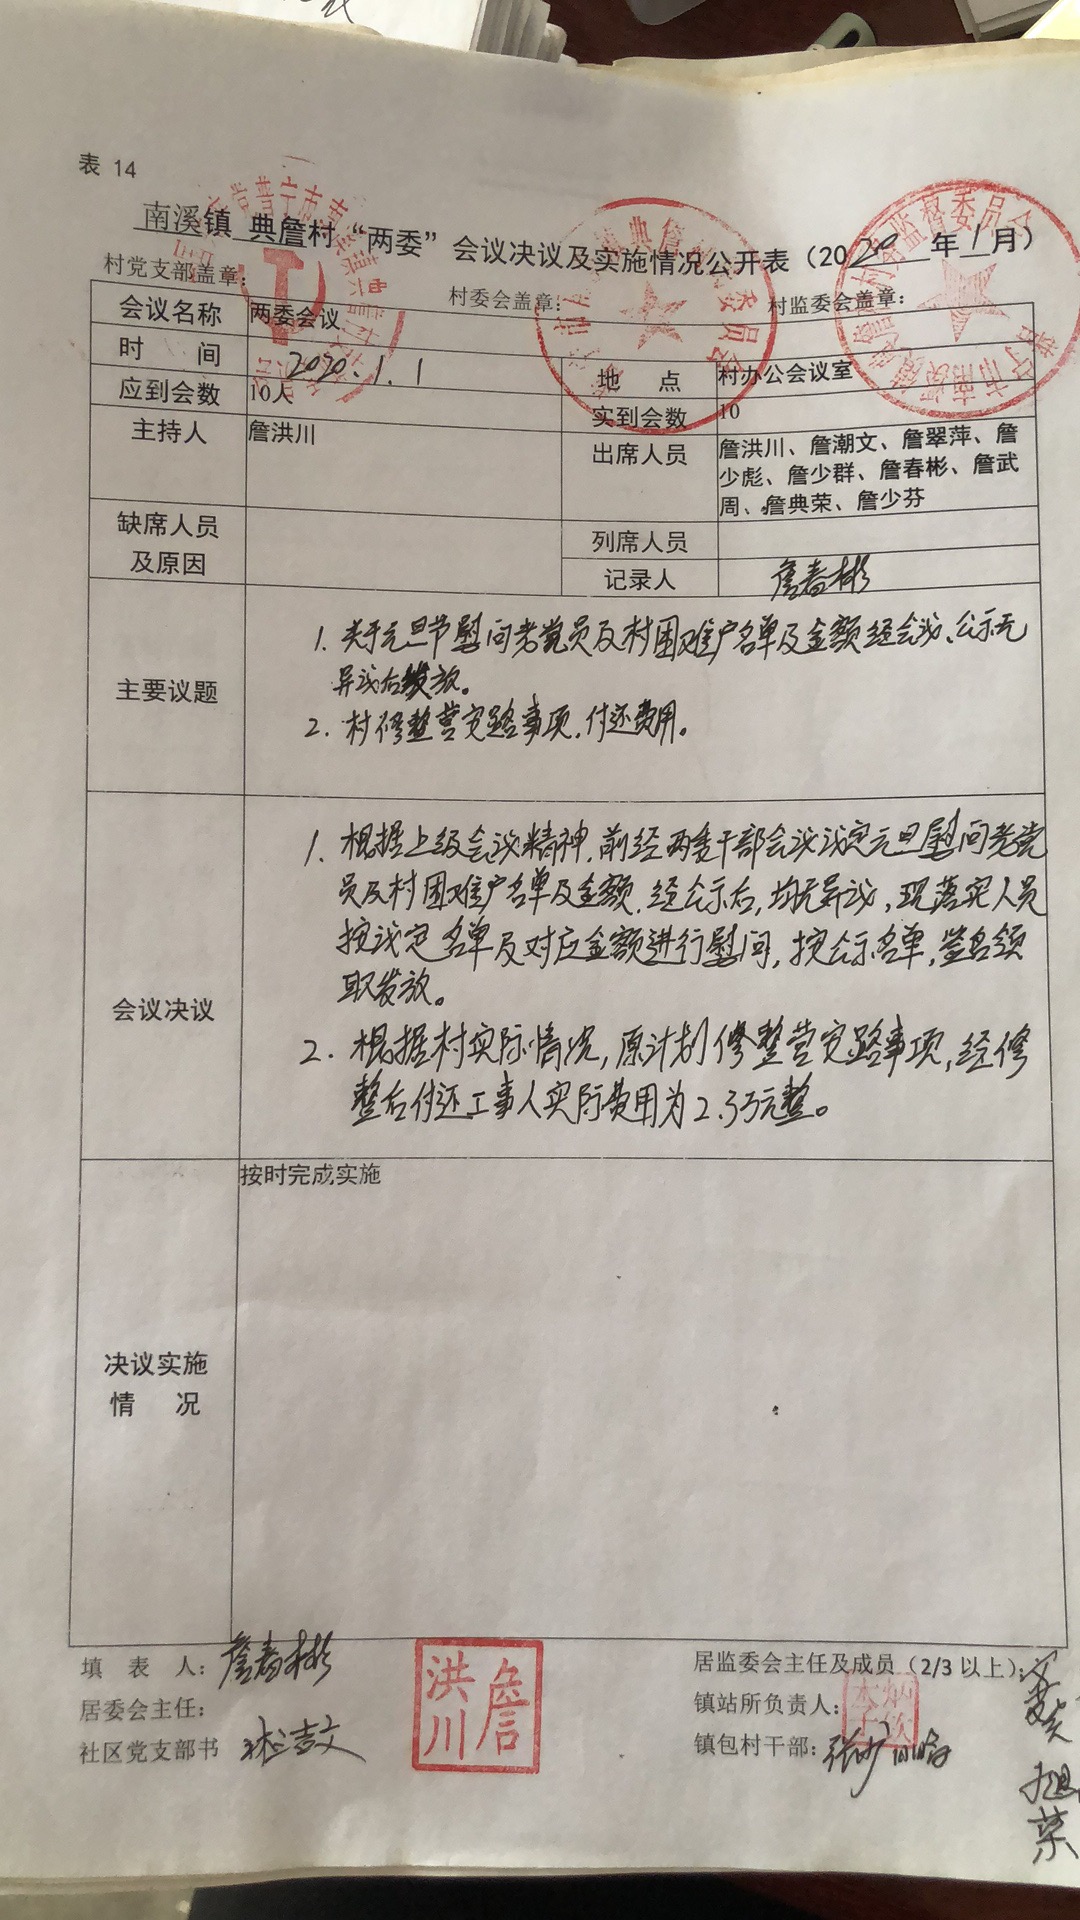 表 14
南溪镇 典詹村“两委”会议决议及实施情况公开表（2020年1月）
村党支部盖章： 村委会盖章： 村监委会盖章：
会议名称 两委会议
时 间 2020.1.1 地 点 村办公会议室
应到会数 10人 实到会数 10
主持人 詹洪川 出席人员 詹洪川、詹潮文、詹翠萍、詹
少彪、詹少群、詹春彬、詹武
周、詹典荣、詹少芬
缺席人员
及原因
列席人员
记录人 詹春彬
主要议题
1. 关于元旦节慰问老党员及村困难户名单及金额经会议、公示无
异议后发放。
2. 村修整营安路事项，付还费用。
会议决议
1. 根据上级会议精神，前经两委干部会议议定元旦慰问老党
员及村困难户名单及金额，经公示后，均无异议，现落实人员
按议定名单及对应金额进行慰问，按公示名单，签名领
取发放。
2. 根据村实际情况，原计划修整营安路事项，经修
整后付还工事人实际费用为2.3万元整。
决议实施
情 况
按时完成实施
填 表 人：詹春彬
居委会主任：
社区党支部书
洪川詹
居监委会主任及成员（2/3 以上）：
镇站所负责人：
镇包村干部：